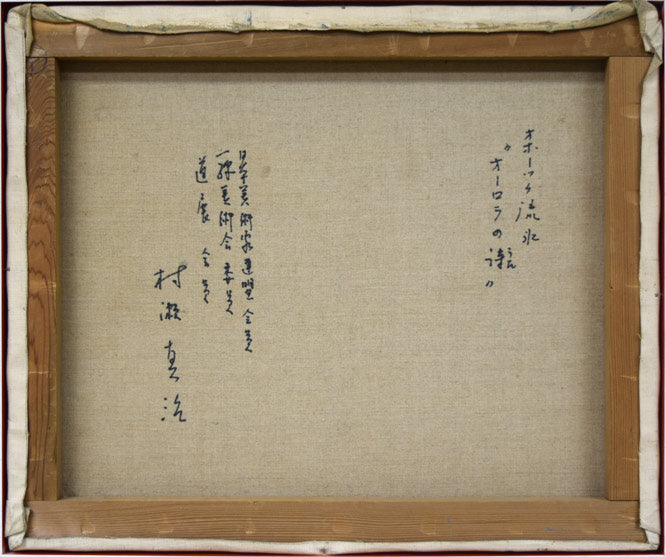 オホーツク流氷
"オーロラの詩"
日本美術家連盟会員
一線美術会委員
道展会員
村瀬真治